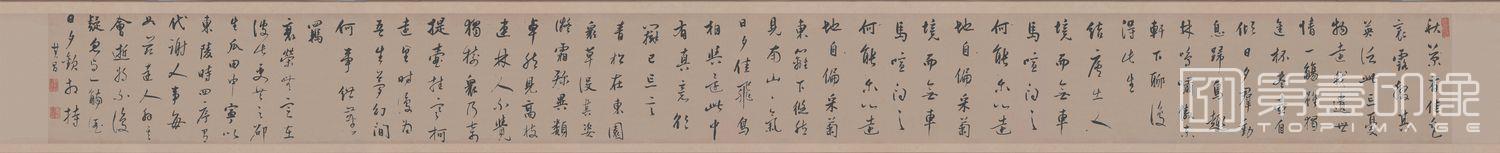 秋菊有佳色
裛露掇其
英泛此忘憂
物遠我遺世
情一觴雖獨
進杯盡壺自
傾日夕群動
息歸鳥趨
林鳴嘯傲東
軒下聊復
得此生
結廬在人
境而無車
馬喧問之
何能尔心遠
地自偏采菊
境而無車
馬喧問之
何能尔心遠
地自偏采菊
東籬下悠然
見南山山氣
日夕佳飛鳥
相與還此中
有真意欲
辨已忘言
青松在東園
衆草沒其姿
凝霜殄異類
卓然見高枝
連林人不覺
獨樹衆乃奇
提壺挂寒柯
遠望時復為
吾生夢幻間
何事紲塵
羈
衰榮無定在
彼此更共之邵
生瓜田中寧似
東陵時四序有
代謝人事每
如茲達人解其
會逝將不復
疑忽與一觴酒
日夕歡相持
其昌
第壹印象
TOPIMAGE